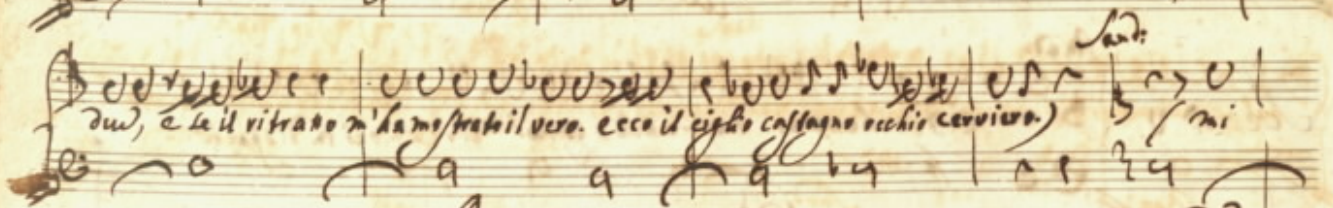 Sand:
due, e se il ritratto m'ha mostrato il vero. ecco il ciglio castagno occhio cerviero.) (mi